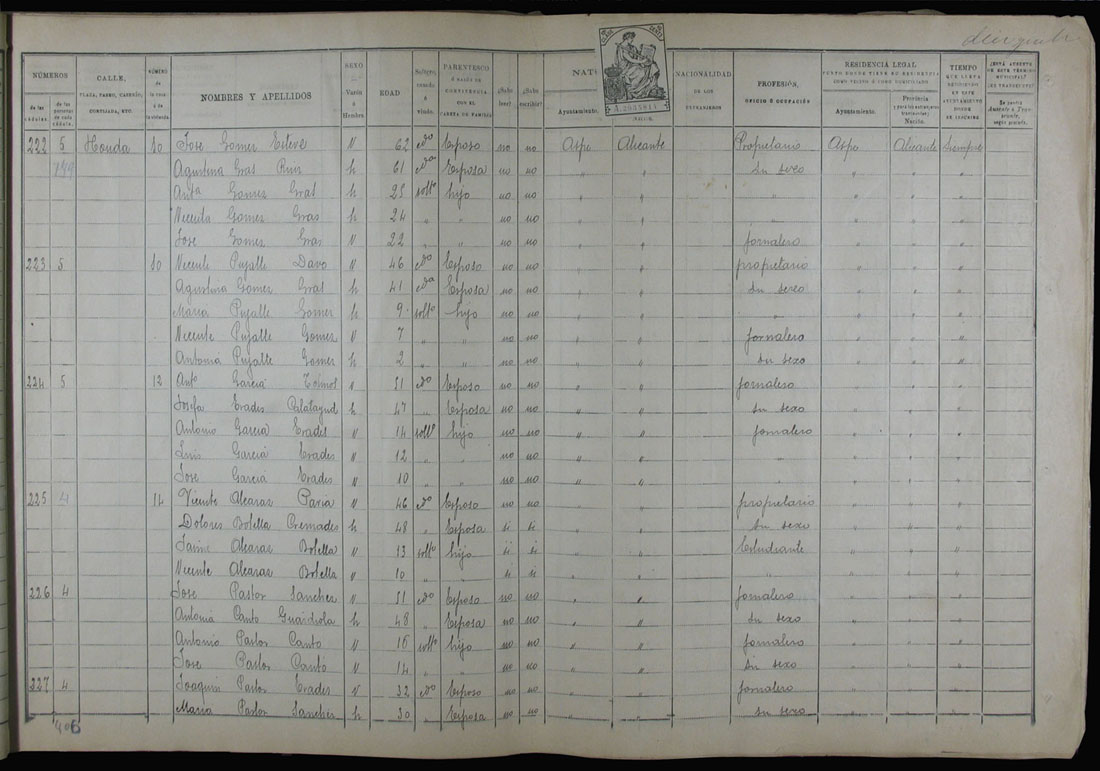 NÚMEROS
de las cédulas.
de las personas de cada cédula.
CALLE,
PLAZA, PASEO, CASERÍO, CORTIJADA, ETC.
NÚMERO de la casa
NOMBRES Y APELLIDOS
SEXO
Varón ó Hembra
EDAD
Soltero, casado ó viudo.
PARENTESCO
Ó RAZÓN DE CONVIVENCIA CON EL CABEZA DE FAMILIA
¿Sabe leer?
¿Sabe escribir?
Ayuntamiento.
A.2035814
NACIONALIDAD
DE LOS
EXTRANJEROS
PROFESIÓN,
OFICIO Ó OCUPACIÓN
RESIDENCIA LEGAL
Ayuntamiento.
Provincia
Nación.
TIEMPO
QUE LLEVA
222 5 Honda 10 Jose Gomez Esteve V 62 cdo Esposo no no Aspe Alicante Propietario Aspe Alicante Siempre
199 Agustina Gras Ruiz h 61 cda Esposa no no " " su sexo " " "
Anta Gomez Gras h 25 solta hijo no no " " " " " "
Vecenta Gomez Gras h 24 " " no no " " " " "
Jose Gomez Gras V 22 " " no no " " Jornalero " " "
223 5 10 Vecente Pujalte Davo V 46 cdo Esposo no no " " propietario " " "
Agustina Gomez Gras h 41 cda Esposa no no " " su sexo " " "
Maria Pujalte Gomez h 9 solto hijo no no " " " " " "
Vecente Pujalte Gomez V 7 " " no no " " Jornalero " " "
Antonia Pujalte Gomez h 2 " " no no " " su sexo " " "
224 5 12 Anto Garcia V 51 cdo Esposo no no " " Jornalero " " "
Josefa Erades Calatayud h 47 " Esposa no no " " su sexo " " "
Antonio Garcia Erades V 14 solto hijo no no " " Jornalero " " "
Luis Garcia Erades V 12 " " no no " " " " "
Jose Garcia Erades V 10 " " no no " " " " "
225 4 14 Vicente Alcaraz Pavia V 46 cdo Esposo no no " " propietario " " "
Dolores Botella Cremades h 48 " Esposa si si " " su sexo " " "
Jaime Alcaraz Botella V 13 solto hijo si si " " Estudiante " " "
Vecente Alcaraz Botella V 10 " " si si " " " " " "
226 4 Jose Pastor Sanchez V 51 cdo Esposo no no " " Jornalero " " "
Antonia Canto Guardiola h 48 " Esposa no no " " su sexo " " "
Antonio Pastor Canto V 16 solto hijo no no " " Jornalero " " "
Jose Pastor Canto V 14 " " no no " " su sexo " " "
227 4 Joaquin Pastor Erades V 32 cdo Esposo no no " " Jornalero " " "
Maria Pastor Sanchez h 30 " Esposa no no " " su sexo " " "